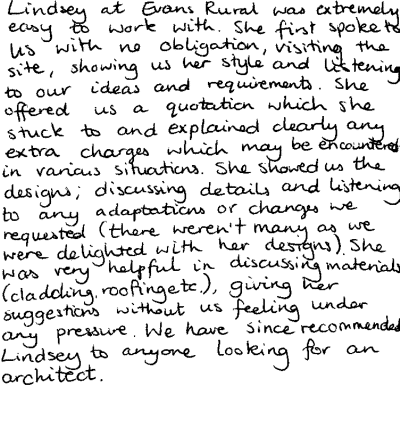 Lindsey at Evans Rural was extremely
easy to work with. She first spoke to
us with no obligation, visiting the
site, showing us her style and listening
to our ideas and requirements. She
offered us a quotation which she
stuck to and explained clearly any
extra charges which may be encountered
in various situations. She showed us the
designs; discussing details and listening
to any adaptations or changes we
requested (there weren't many as we
were delighted with her designs). She
was very helpful in discussing materials
(cladding, roofing etc.), giving her
suggestions without us feeling under
any pressure. We have since recommended
Lindsey to anyone looking for an
architect.